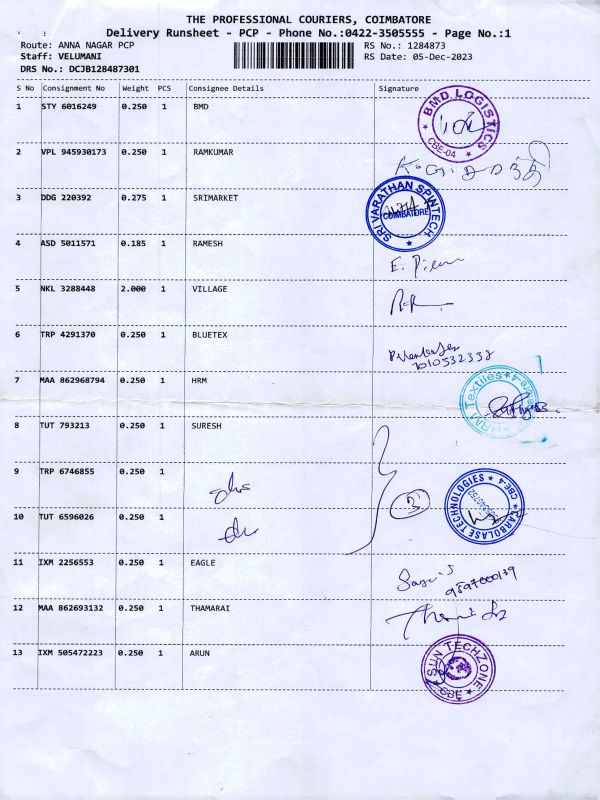 THE PROFESSIONAL COURIERS, COIMBATORE
Delivery Runsheet - PCP - Phone No.:0422-3505555 - Page No.:1
Route: ANNA NAGAR PCP RS No.: 1284873
Staff: VELUMANI RS Date: 05-Dec-2023
DRS No.: DCJB128487301
S No Consignment No Weight PCS Consignee Details Signature
1 STY 6016249 0.250 1 BMD
BMD LOGISTICS
CBE-04
2 VPL 945930173 0.250 1 RAMKUMAR
3 DDG 220392 0.275 1 SRIMARKET
SRI VARATHAN SPINTECH
COIMBATORE
4 ASD 5011571 0.185 1 RAMESH
5 NKL 3288448 2.000 1 VILLAGE
6 TRP 4291370 0.250 1 BLUETEX
7010532352
7 MAA 862968794 0.250 1 HRM
HRM Textiles
8 TUT 793213 0.250 1 SURESH
9 TRP 6746855 0.250 1
3
CARBOLASE TECHNOLOGIES
CBE-4
10 TUT 6596026 0.250 1
11 IXM 2256553 0.250 1 EAGLE
9597000139
12 MAA 862693132 0.250 1 THAMARAI
13 IXM 505472223 0.250 1 ARUN
SUN TECHZONE
CBE